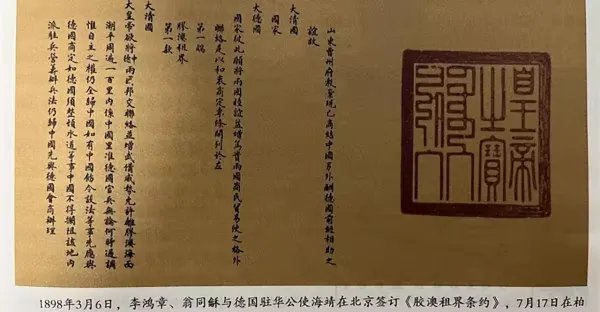 山東曹州府教案現已商結中國另外酬德國前經相助之
誼故
大清國
國家
大德國
國家彼此願將兩國睦誼益增篤實兩國商民貿易使之格外
聯絡是以和衷商定專條開列於左
第一端
膠澳租界
第一款
大清國
大皇帝欲將中德兩國邦交聯絡並增武備威勢允許離膠澳海面
潮平周遍一百里內係中國里准德國官兵無論何時過調
惟自主之權仍全歸中國如有中國飭令設法等事先應與
德國商定如德國須整頓水道等事中國不得攔阻該地內
派駐兵營籌辦兵法仍歸中國先與德國會商辦理
皇帝
之寶
1898年3月6日，李鸿章、翁同龢与德国驻华公使海靖在北京签订《胶澳租界条约》，7月17日在柏